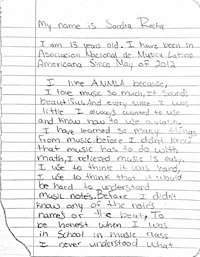 My name is Sandra Rocha
I am 13 years old. I have been in
Asociacion Nacional de Musica Latino
Americana Since May of 2012
I like ANMLA because,
I love music so much, It Sounds
beautiful. And every since I was
little I always wanted to use
and know how to use a violin.
I have learned so many things
from music. before I didnt know
that music has to do with
math, I relized music is easy.
I use to think it was hard,
I use to think that it would
be hard to understand
music notes. Before I didnt
know any of the notes
names or the beat, To
be honest when I was
in School in music class
I never understood what